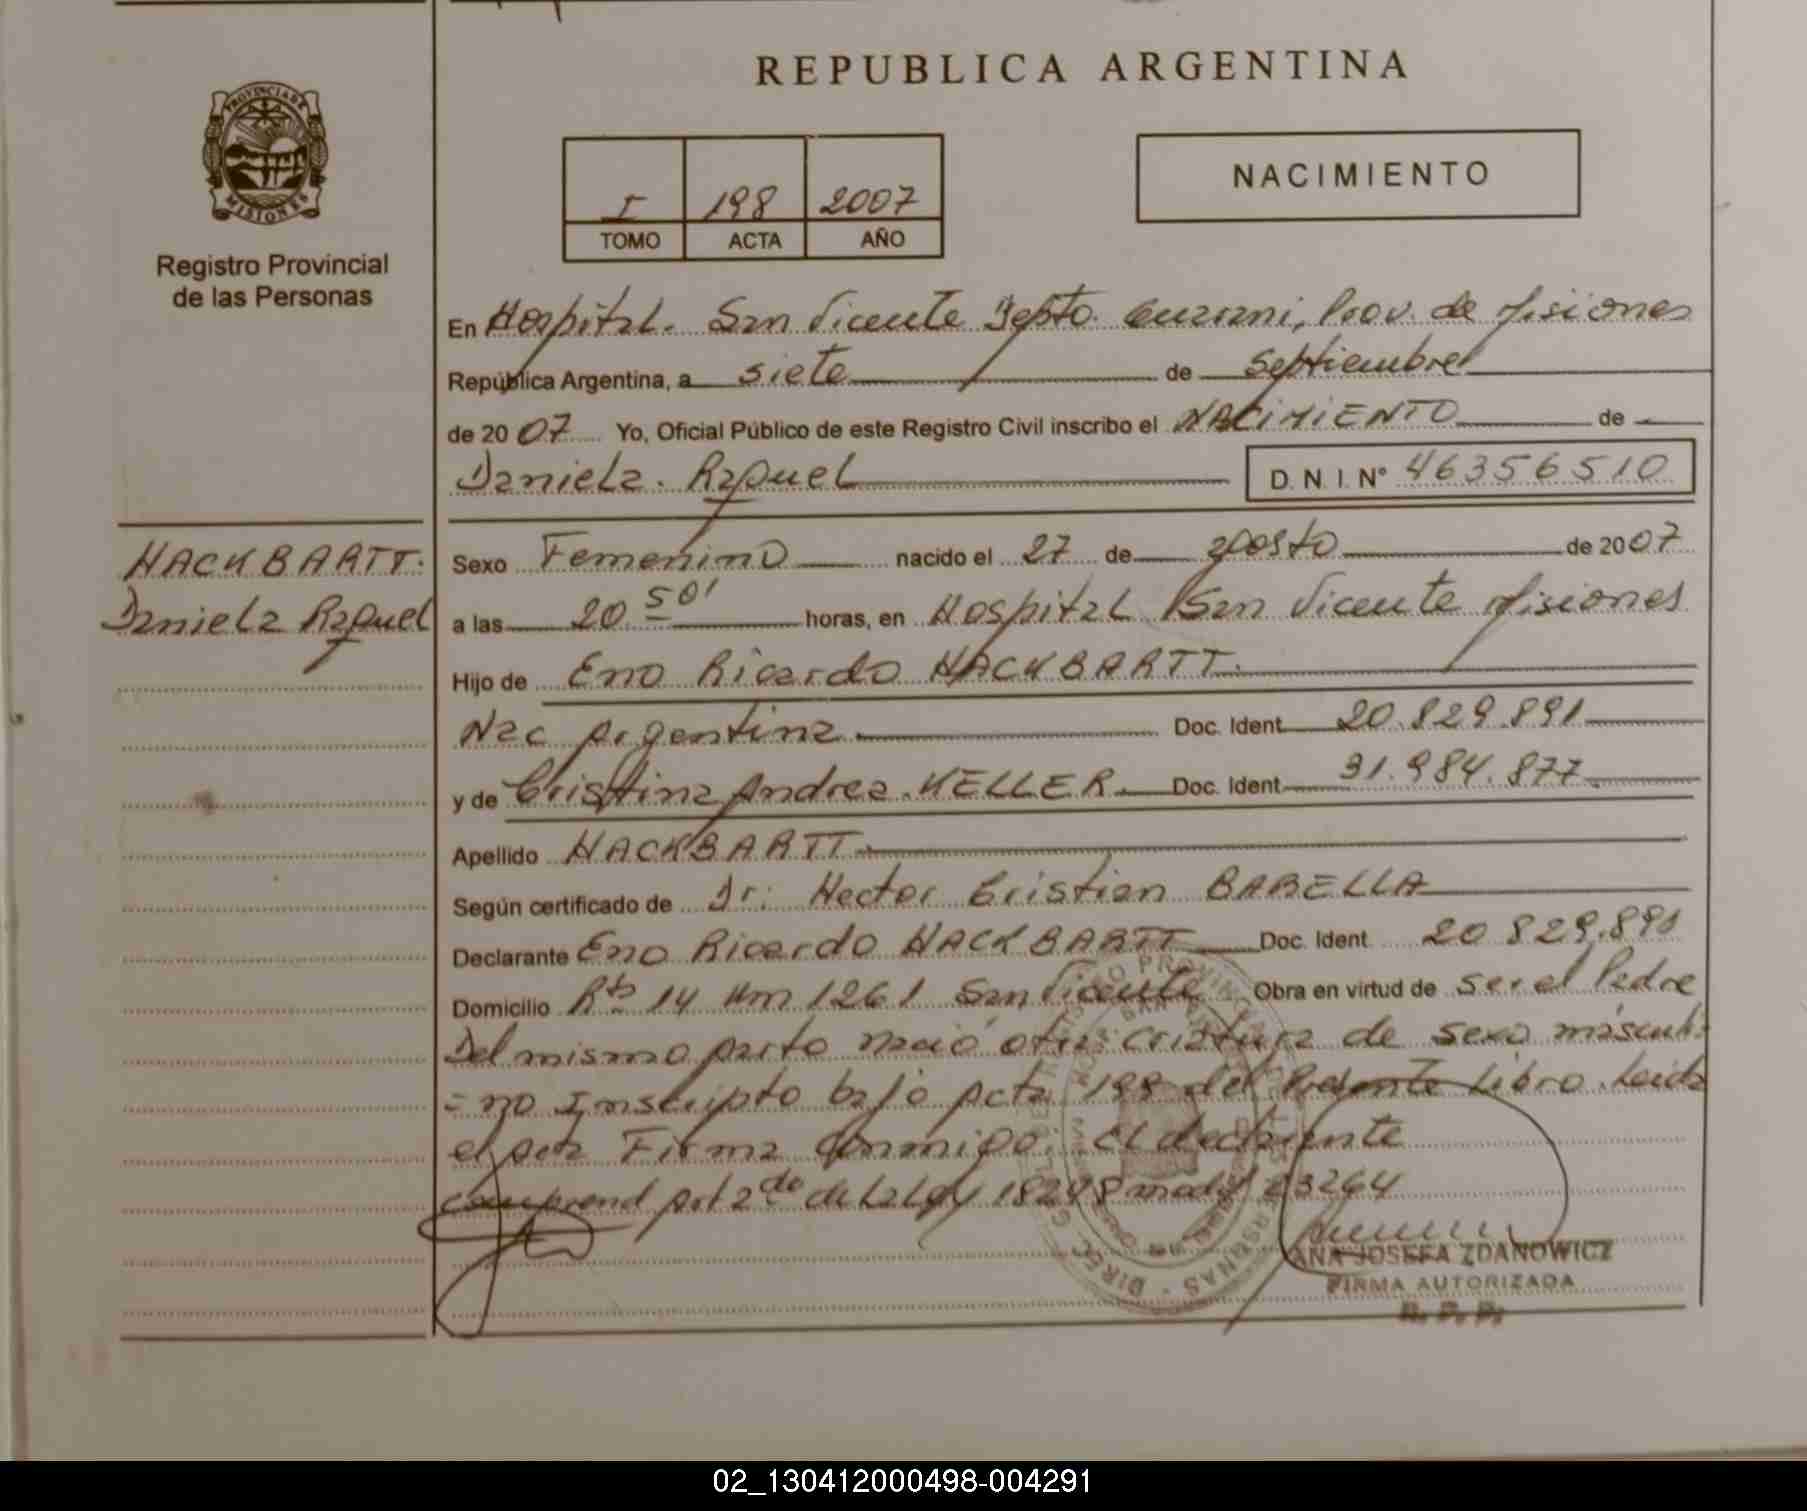 REPUBLICA ARGENTINA
PROVINCIA DE
MISIONES
Registro Provincial
de las Personas
I 198 2007
TOMO ACTA AÑO
NACIMIENTO
En Hospital. San Vicente Depto. Guarani, Prov. de Misiones
República Argentina, a siete de Septiembre
de 2007 Yo, Oficial Público de este Registro Civil inscribo el NACIMIENTO de
Daniela. Raquel D. N. I. Nº 46356510
HACKBARTT.
Daniela Raquel
Sexo Femenino nacido el 27 de agosto de 2007
a las 20 50' horas, en Hospital San Vicente Misiones
Hijo de Eno Ricardo HACKBARTT.
Nac Argentina Doc. Ident 20.829.891
y de Cristina Andrea KELLER Doc. Ident 31.984.877
Apellido HACKBARTT
Según certificado de Dr: Hector Cristian BARELLA
Declarante Eno Ricardo HACKBARTT Doc. Ident 20 829.891
Domicilio Rta 14 Km 1261 San Vicente Obra en virtud de ser el Padre
Del mismo parto nació otra criatura de sexo másculi
= no Inscripto bajo Acta 199 del Presente Libro. Leida
el acta Firma Conmigo. El declarante
comprend Art 2do de La Ley 18248 modif 23264
ANA JOSEFA ZDANOWICZ
FIRMA AUTORIZADA
R. P. P.
02_130412000498-004291